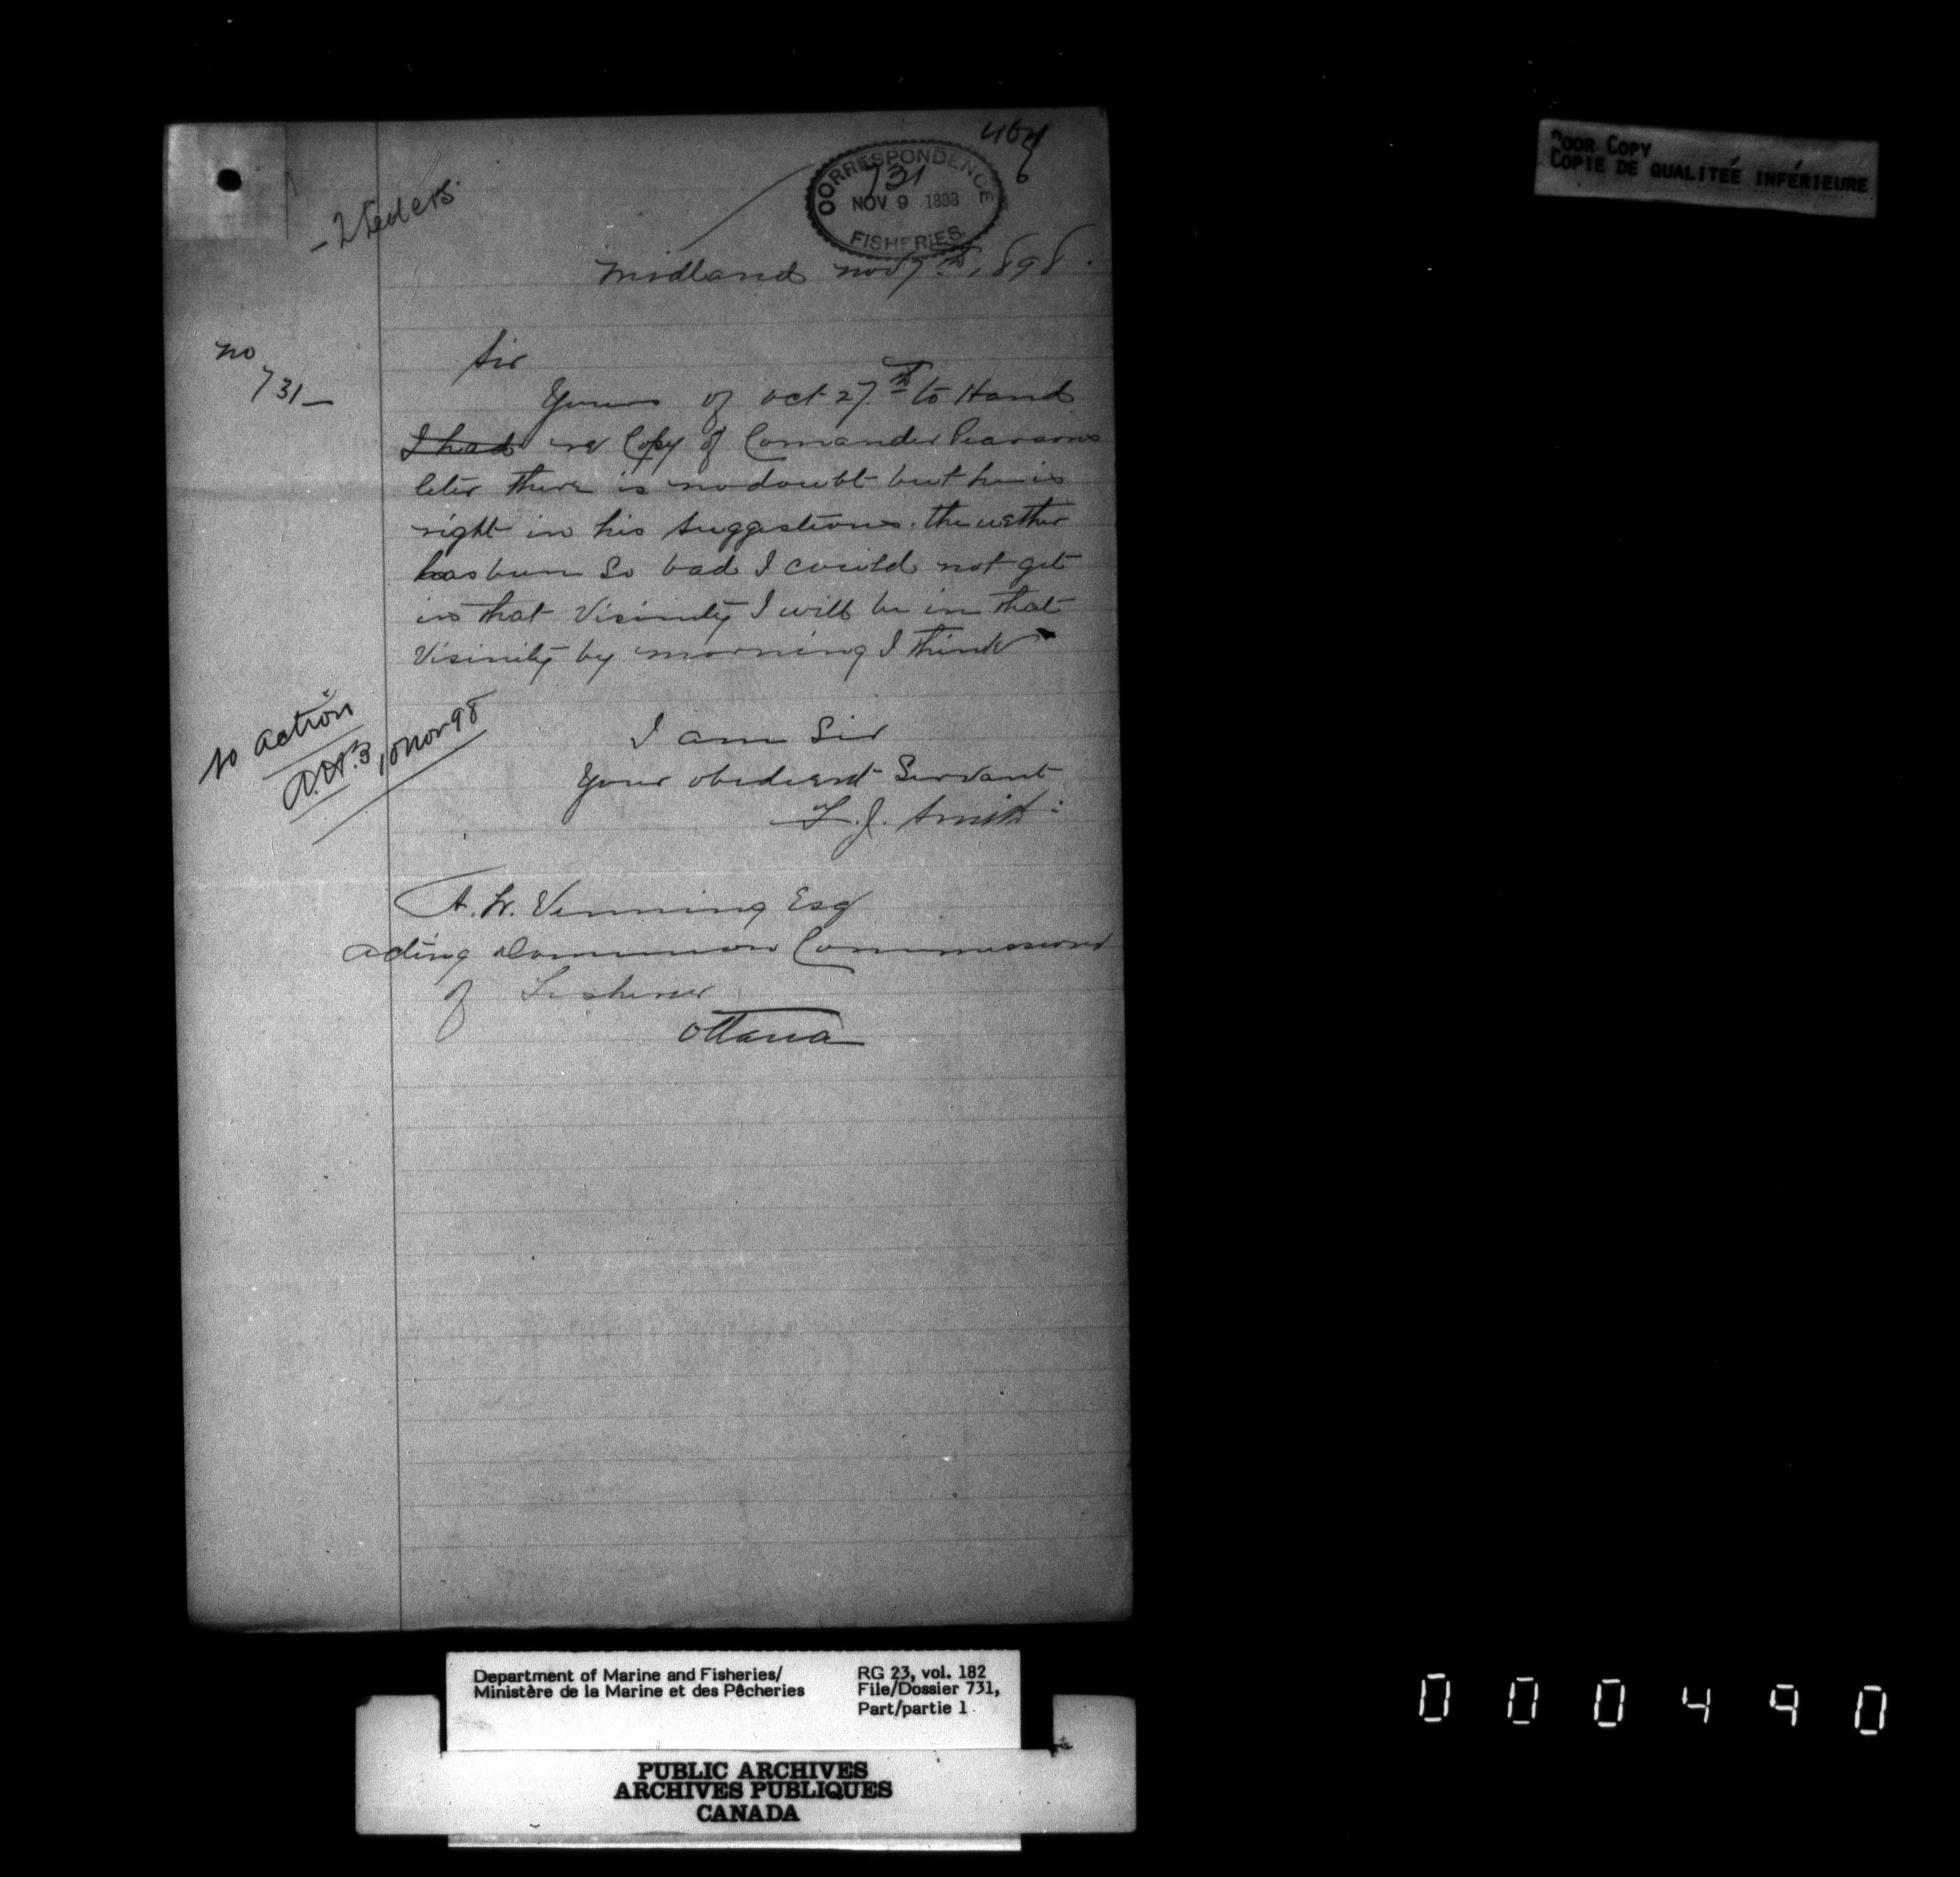 POOR COPY
COPIE DE QUALITEÉ INFÉRIEURE
464
CORRESPONDENCE
731
NOV 9 1898
FISHERIES
Midland nov 7th 1898.
no
731_
Sir
Yours of oct 27th to Hand
I had re Copy of Comander Pearsons
leter there is no doubt but he is
right in his Suggestions. the wether
has been So bad I could not get
in that Visinity I will be in that
Visinity by morning I think
no action
10 Nov 98
I am Sir
Your obedient Servant
T. J. Smith
Venning Esq
acting Dominion Commissioner
of Fisheries
Ottawa
Department of Marine and Fisheries/
Ministère de la Marine et des Pêcheries
RG 23, vol. 182
File/Dossier 731,
Part/partie 1
PUBLIC ARCHIVES
ARCHIVES PUBLIQUES
CANADA
000490